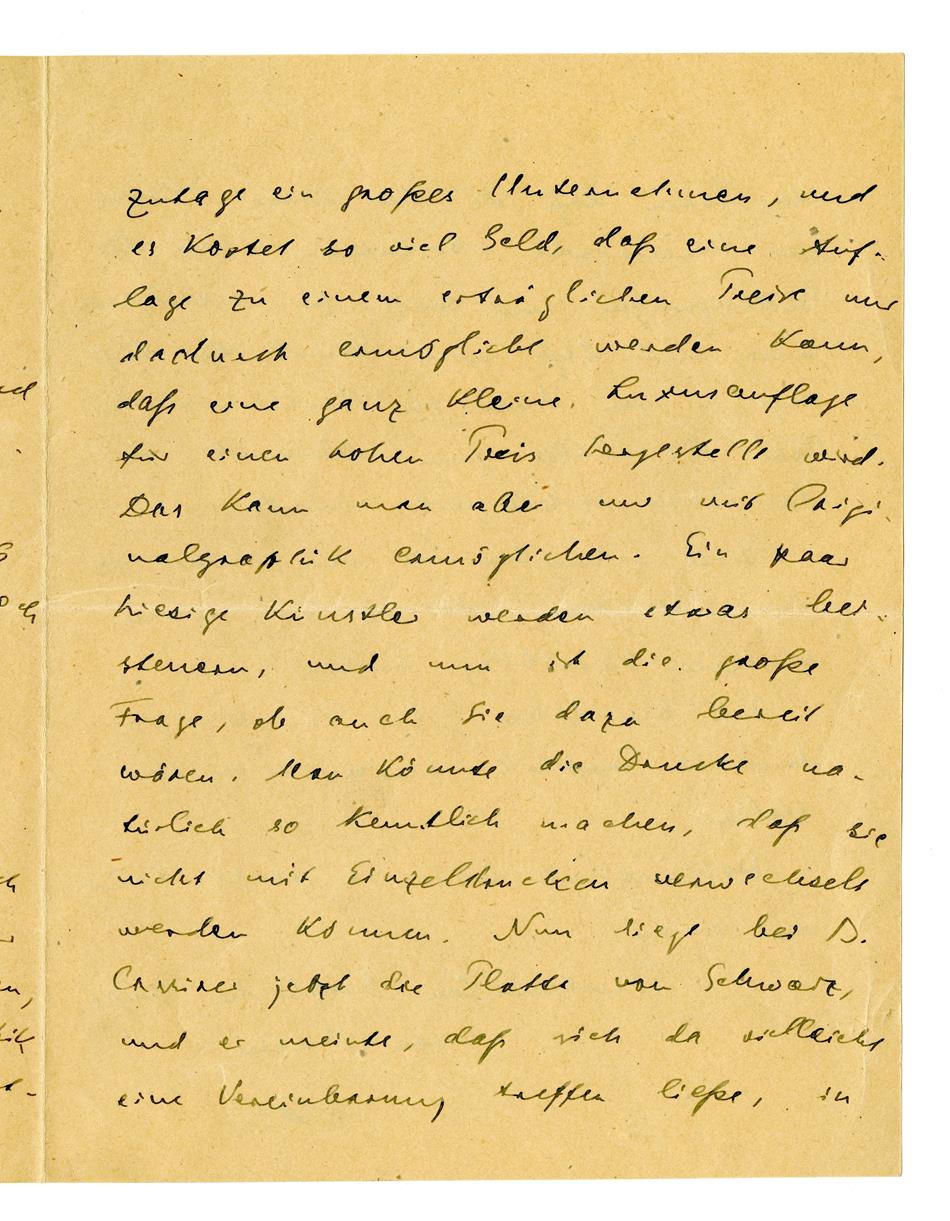 zutage ein großes Unternehmen, und
es kostet so viel Geld, daß eine Auf-
lage zu einem erträglichen Preise nur
dadurch ermöglicht werden kann,
daß eine ganz kleine Luxusauflage
für einen hohen Preis hergestellt wird.
Das kann man aber nur mit Origi-
nalgraphik ermöglichen. Ein paar
hiesige Künstler werden etwas bei-
steuern, und nun ist die große
Frage, ob auch Sie dazu bereit
wären. Man könnte die Drucke na-
türlich so kenntlich machen, daß sie
nicht mit Einzeldrucken verwechselt
werden können. Nun liegt bei B.
Cassirer jetzt die Platte von Schwarz,
und er meinte, daß sich da vielleicht
eine Vereinbarung treffen ließe, in